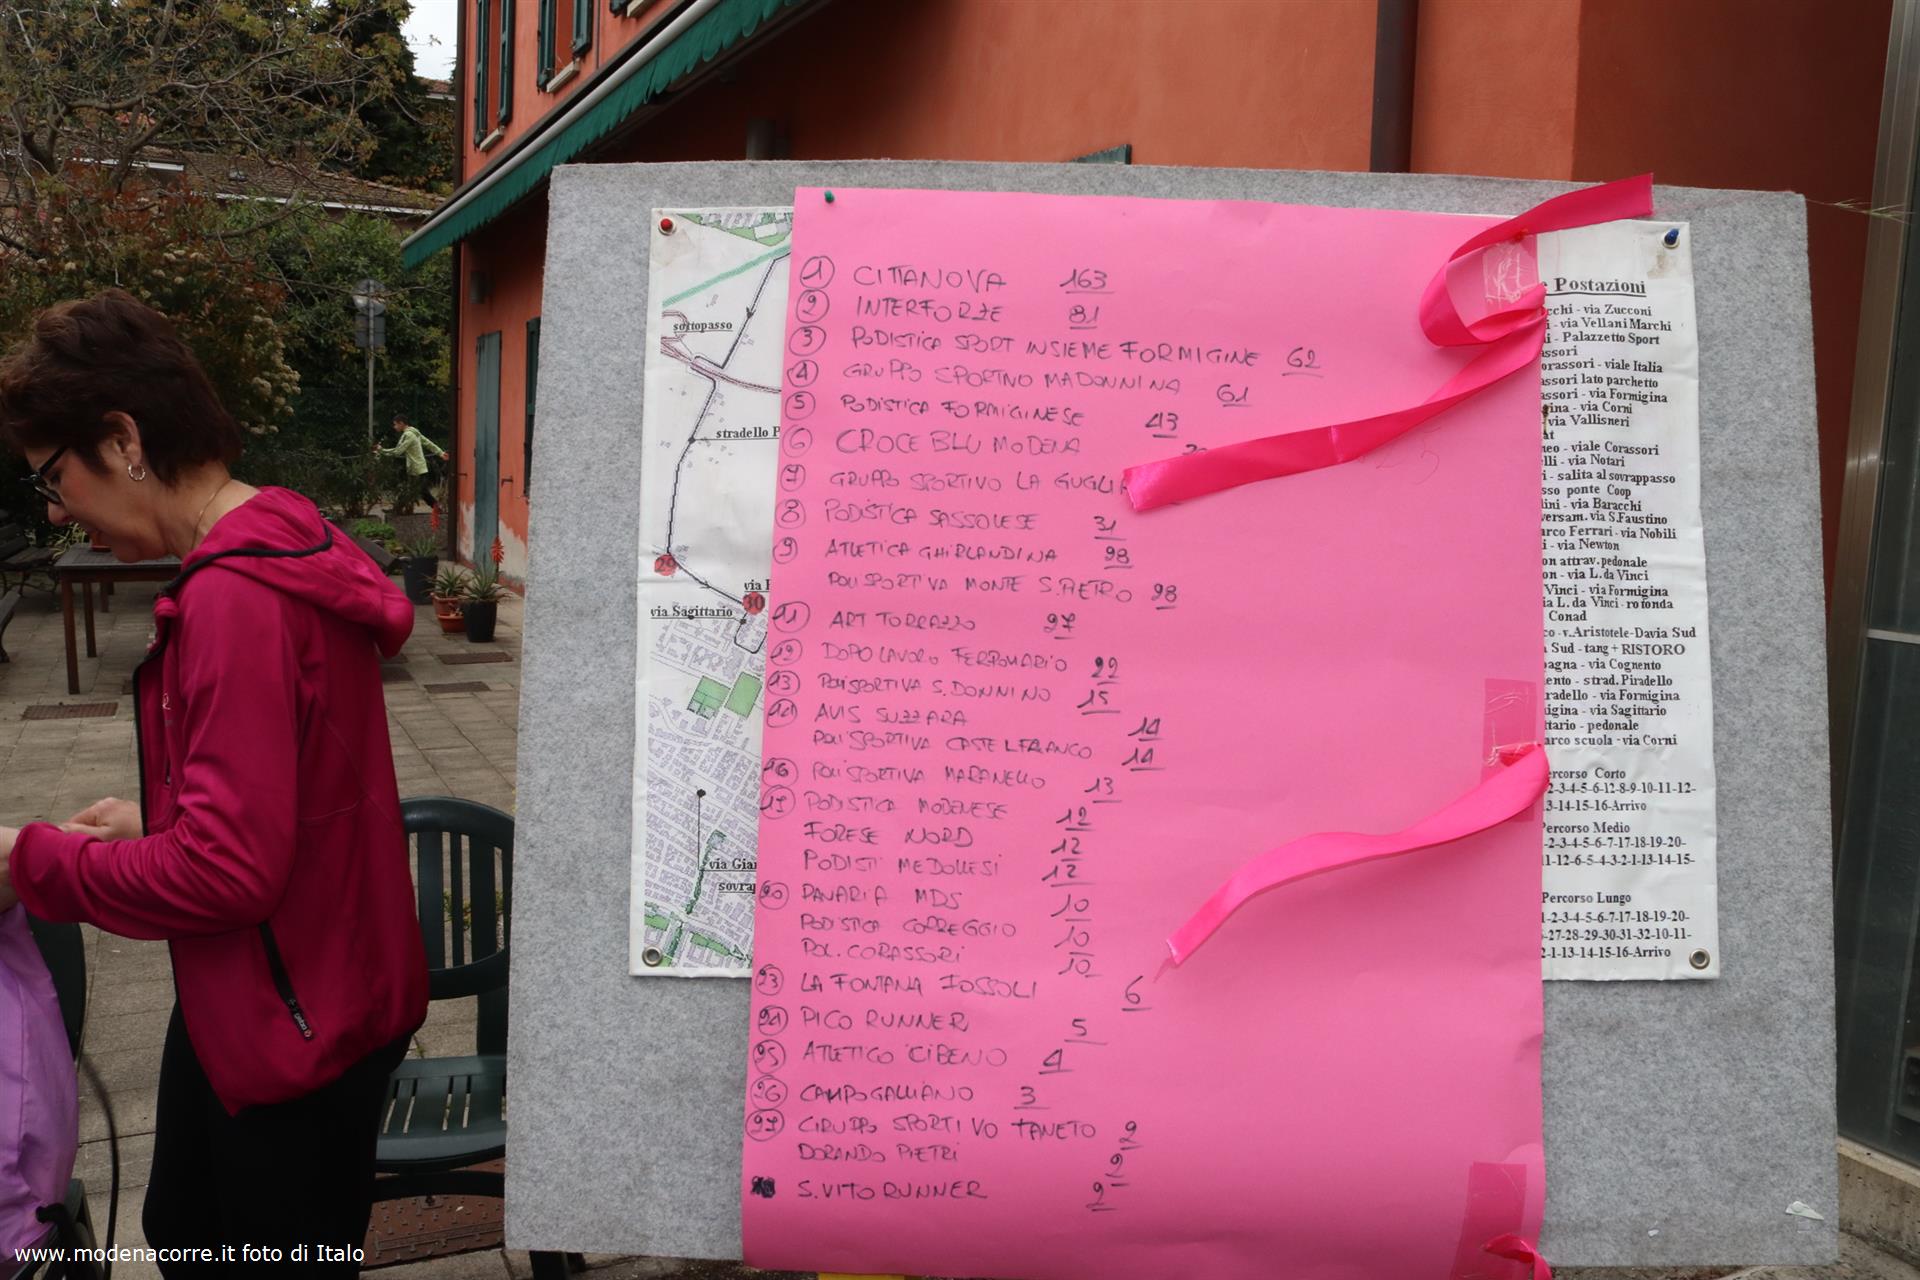 1 CITTANOVA 163
2 INTERFORZE 81
3 PODISTICA SPORT INSIEME FORMIGINE 62
4 GRUPPO SPORTIVO MADONNINA 61
5 PODISTICA FORMIGINESE 43
6 CROCE BLU MODENA
7 GRUPPO SPORTIVO LA GUGLIA
8 PODISTICA SASSOLESE 31
9 ATLETICA GHIRLANDINA 28
POLISPORTIVA MONTE S.PIETRO 28
11 ART TORRAZZO 27
12 DOPOLAVORO FERROVIARIO 22
13 POLISPORTIVA S.DONNINO 15
14 AVIS SUZZARA 14
POLISPORTIVA CASTELFRANCO 14
16 POLISPORTIVA MARANELLO 13
17 PODISTICA MODENESE 12
FORESE NORD 12
PODISTI MEDOLLESI 12
20 PANARIA MDS 10
PODISTICA CORREGGIO 10
POL. CORASSORI 10
23 LA FONTANA FOSSOLI 6
24 PICO RUNNER 5
25 ATLETICO CIBENO 4
26 CAMPOGALLIANO 3
27 GRUPPO SPORTIVO TANETO 2
DORANDO PIETRI 2
S.VITO RUNNER 2
sottopasso
stradello P
29
via
30
via Sagittario
via Gia
sovra
e Postazioni
cchi - via Zucconi
i - via Vellani Marchi
i - Palazzetto Sport
assori
orassori - viale Italia
assori lato parchetto
assori - via Formigina
gina - via Corni
- via Vallisneri
at
neo - viale Corassori
lli - via Notari
i - salita al sovrappasso
sso ponte Coop
lini - via Baracchi
versam. via S.Faustino
arco Ferrari - via Nobili
i - via Newton
on attrav. pedonale
on - via L. da Vinci
Vinci - via Formigina
ia L. da Vinci - rotonda
Conad
co - v.Aristotele-Davia Sud
Sud - tang + RISTORO
agna - via Cognento
ento - strad. Piradello
radello - via Formigina
igina - via Sagittario
ttario - pedonale
arco scuola - via Corni
ercorso Corto
2-3-4-5-6-12-8-9-10-11-12-
3-14-15-16-Arrivo
Percorso Medio
-2-3-4-5-6-7-17-18-19-20-
11-12-6-5-4-3-2-1-13-14-15-
Percorso Lungo
1-2-3-4-5-6-7-17-18-19-20-
-27-28-29-30-31-32-10-11-
2-1-13-14-15-16-Arrivo
www.modenacorre.it foto di Italo